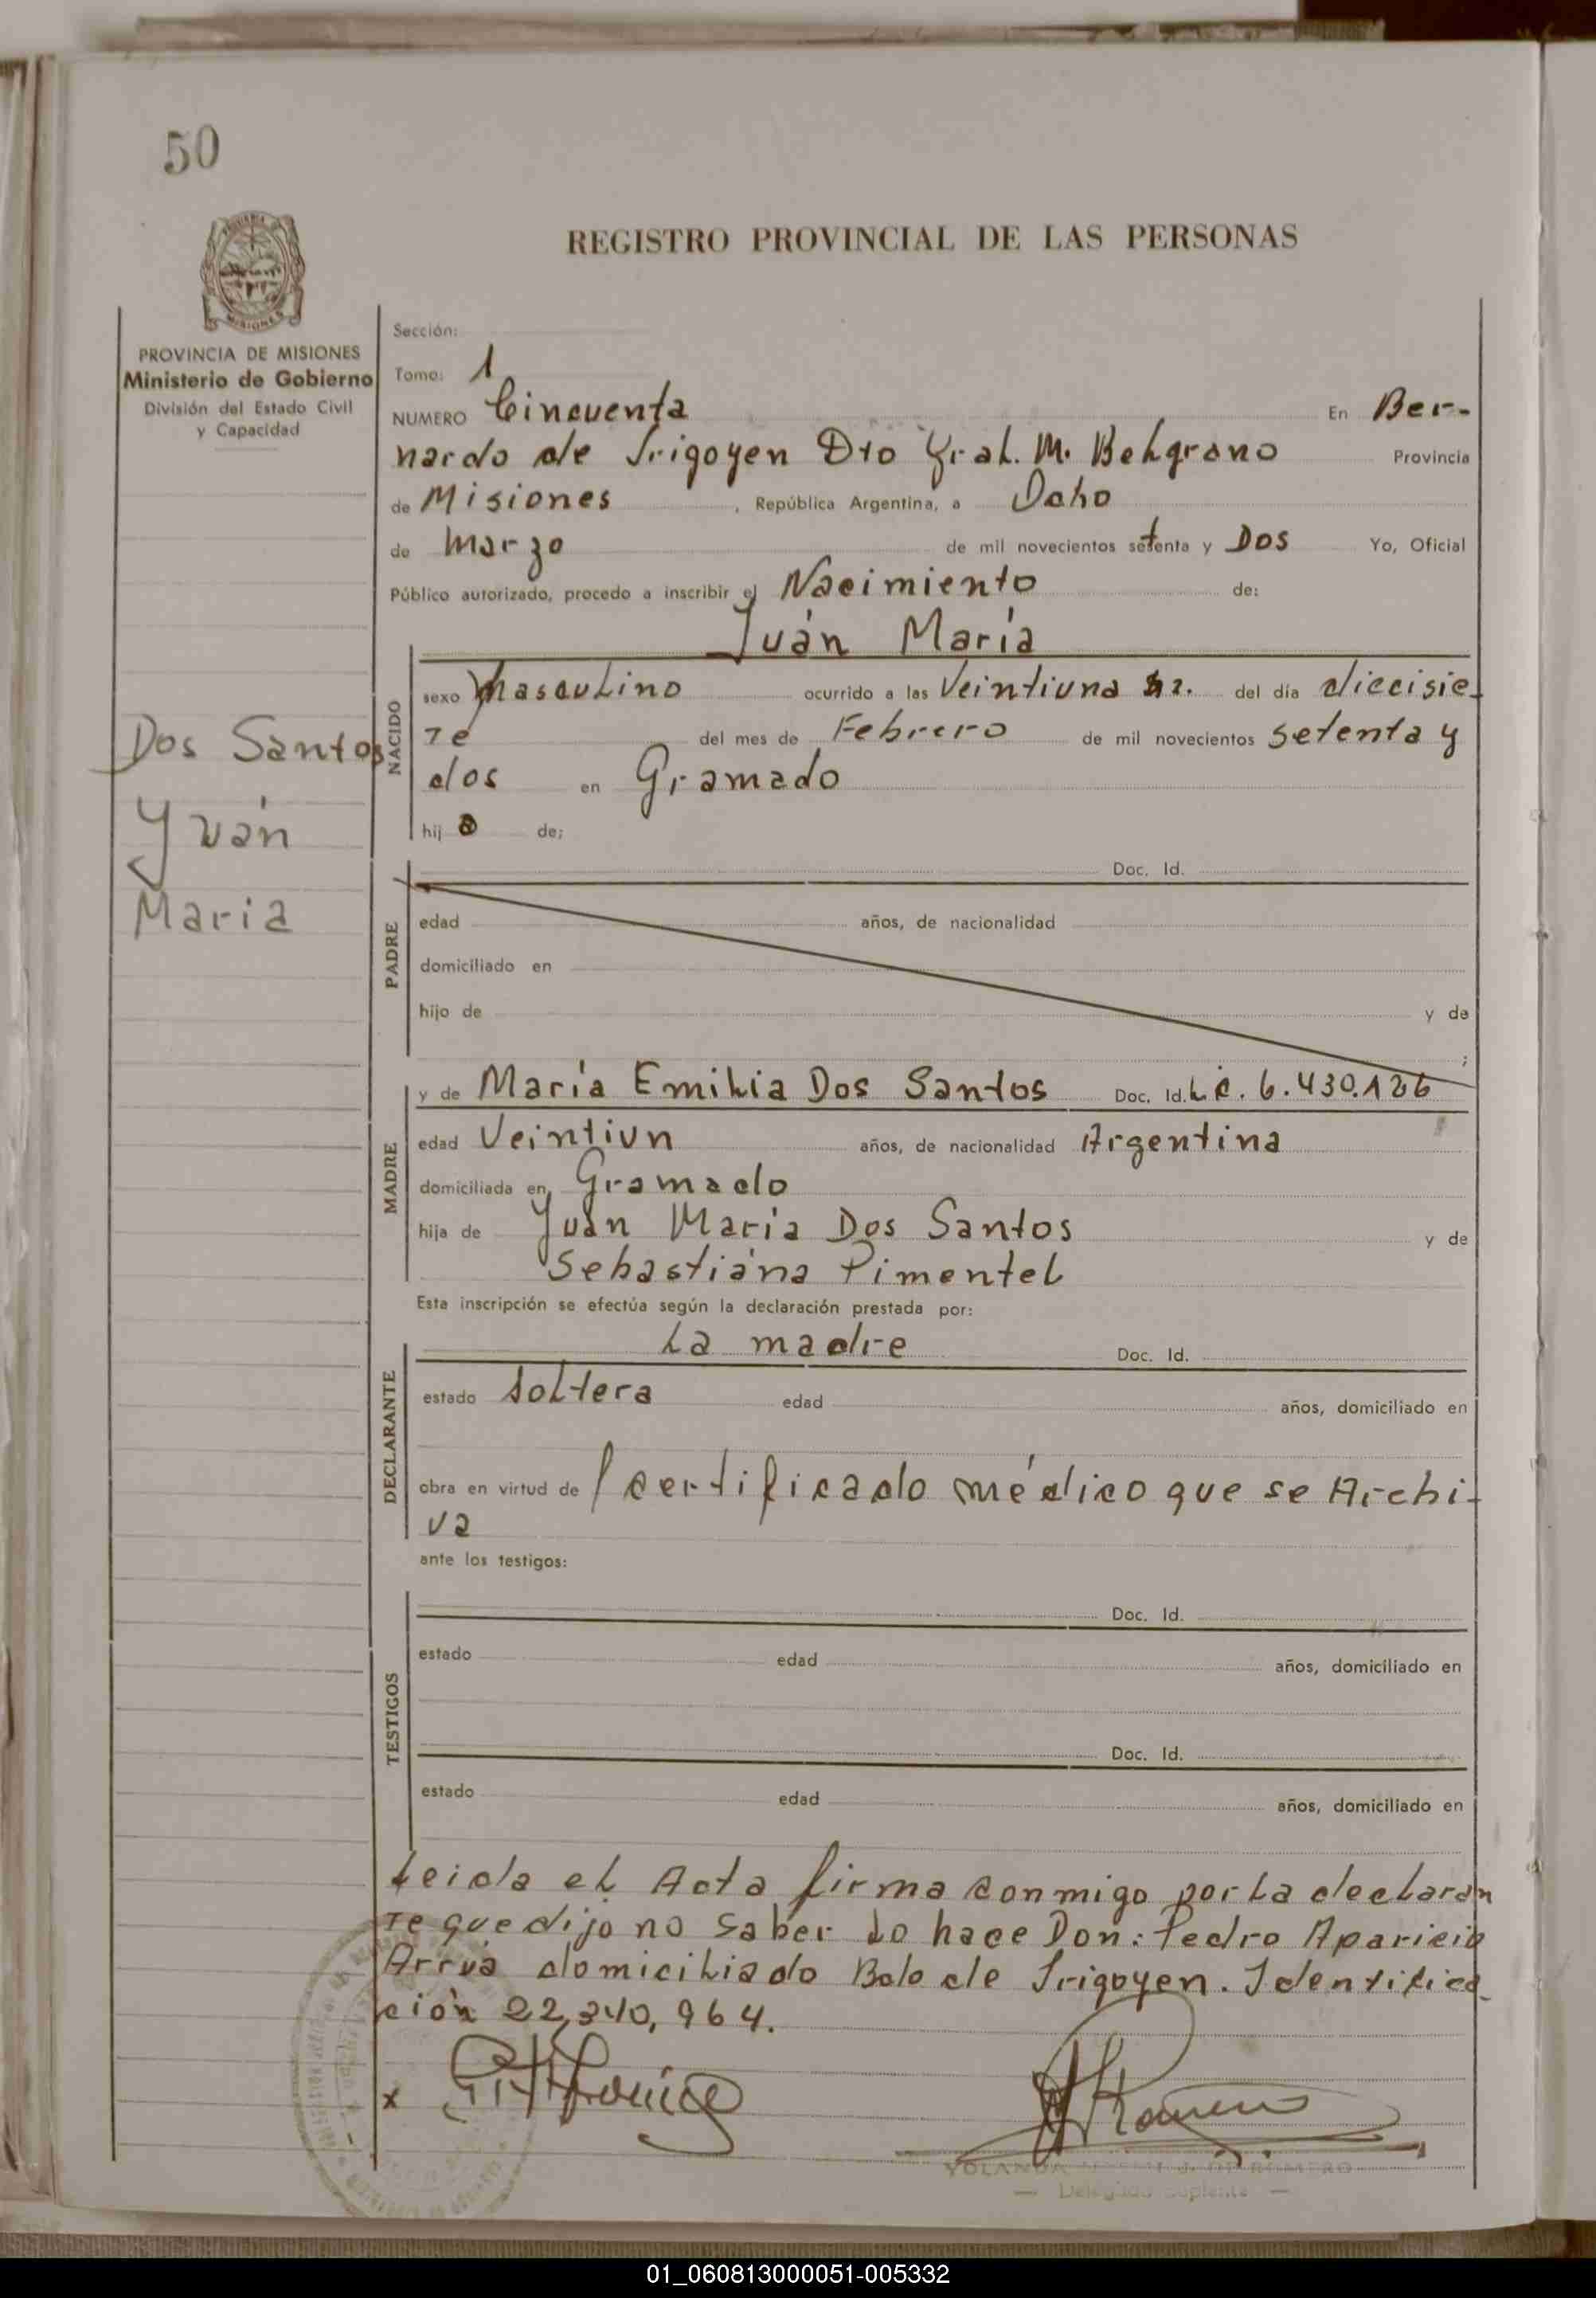 50
REGISTRO PROVINCIAL DE LAS PERSONAS
MISIONES
PROVINCIA DE MISIONES
Ministerio de Gobierno
División del Estado Civil
y Capacidad
Sección:
Tomo: 1
NUMERO Cincuenta En Ber-
nardo de Irigoyen Dto Gral. M. Belgrano Provincia
de Misiones, República Argentina, a Ocho
de Marzo de mil novecientos setenta y Dos Yo, Oficial
Público autorizado, procedo a inscribir el Nacimiento de:
Juán María
NACIDO
sexo Masculino ocurrido a las Veintiuna hs. del día diecisie-
te del mes de Febrero de mil novecientos setenta y
dos en Gramado
hijo de;
Dos Santos
Juán
Maria
PADRE
Doc. Id.
edad años, de nacionalidad
domiciliado en
hijo de y de
;
MADRE
y de María Emilia Dos Santos Doc. Id. L.C. 6.430.126
edad Veintiun años, de nacionalidad Argentina
domiciliada en Gramado
hija de Juán María Dos Santos y de
Sebastiána Pimentel
Esta inscripción se efectúa según la declaración prestada por:
DECLARANTE
La madre Doc. Id.
estado soltera edad años, domiciliado en
obra en virtud de certificado médico que se Archi-
va
ante los testigos:
TESTIGOS
Doc. Id.
estado edad años, domiciliado en
Doc. Id.
estado edad años, domiciliado en
Leida el Acta firma conmigo por la declaran
te que dijo no saber lo hace Don: Pedro Aparicio
Arrua domiciliado Bdo de Irigoyen. Identifica-
ción 22,340,964.
x
YOLANDA J. DE ROMERO
— Delegado Suplente —
01_060813000051-005332